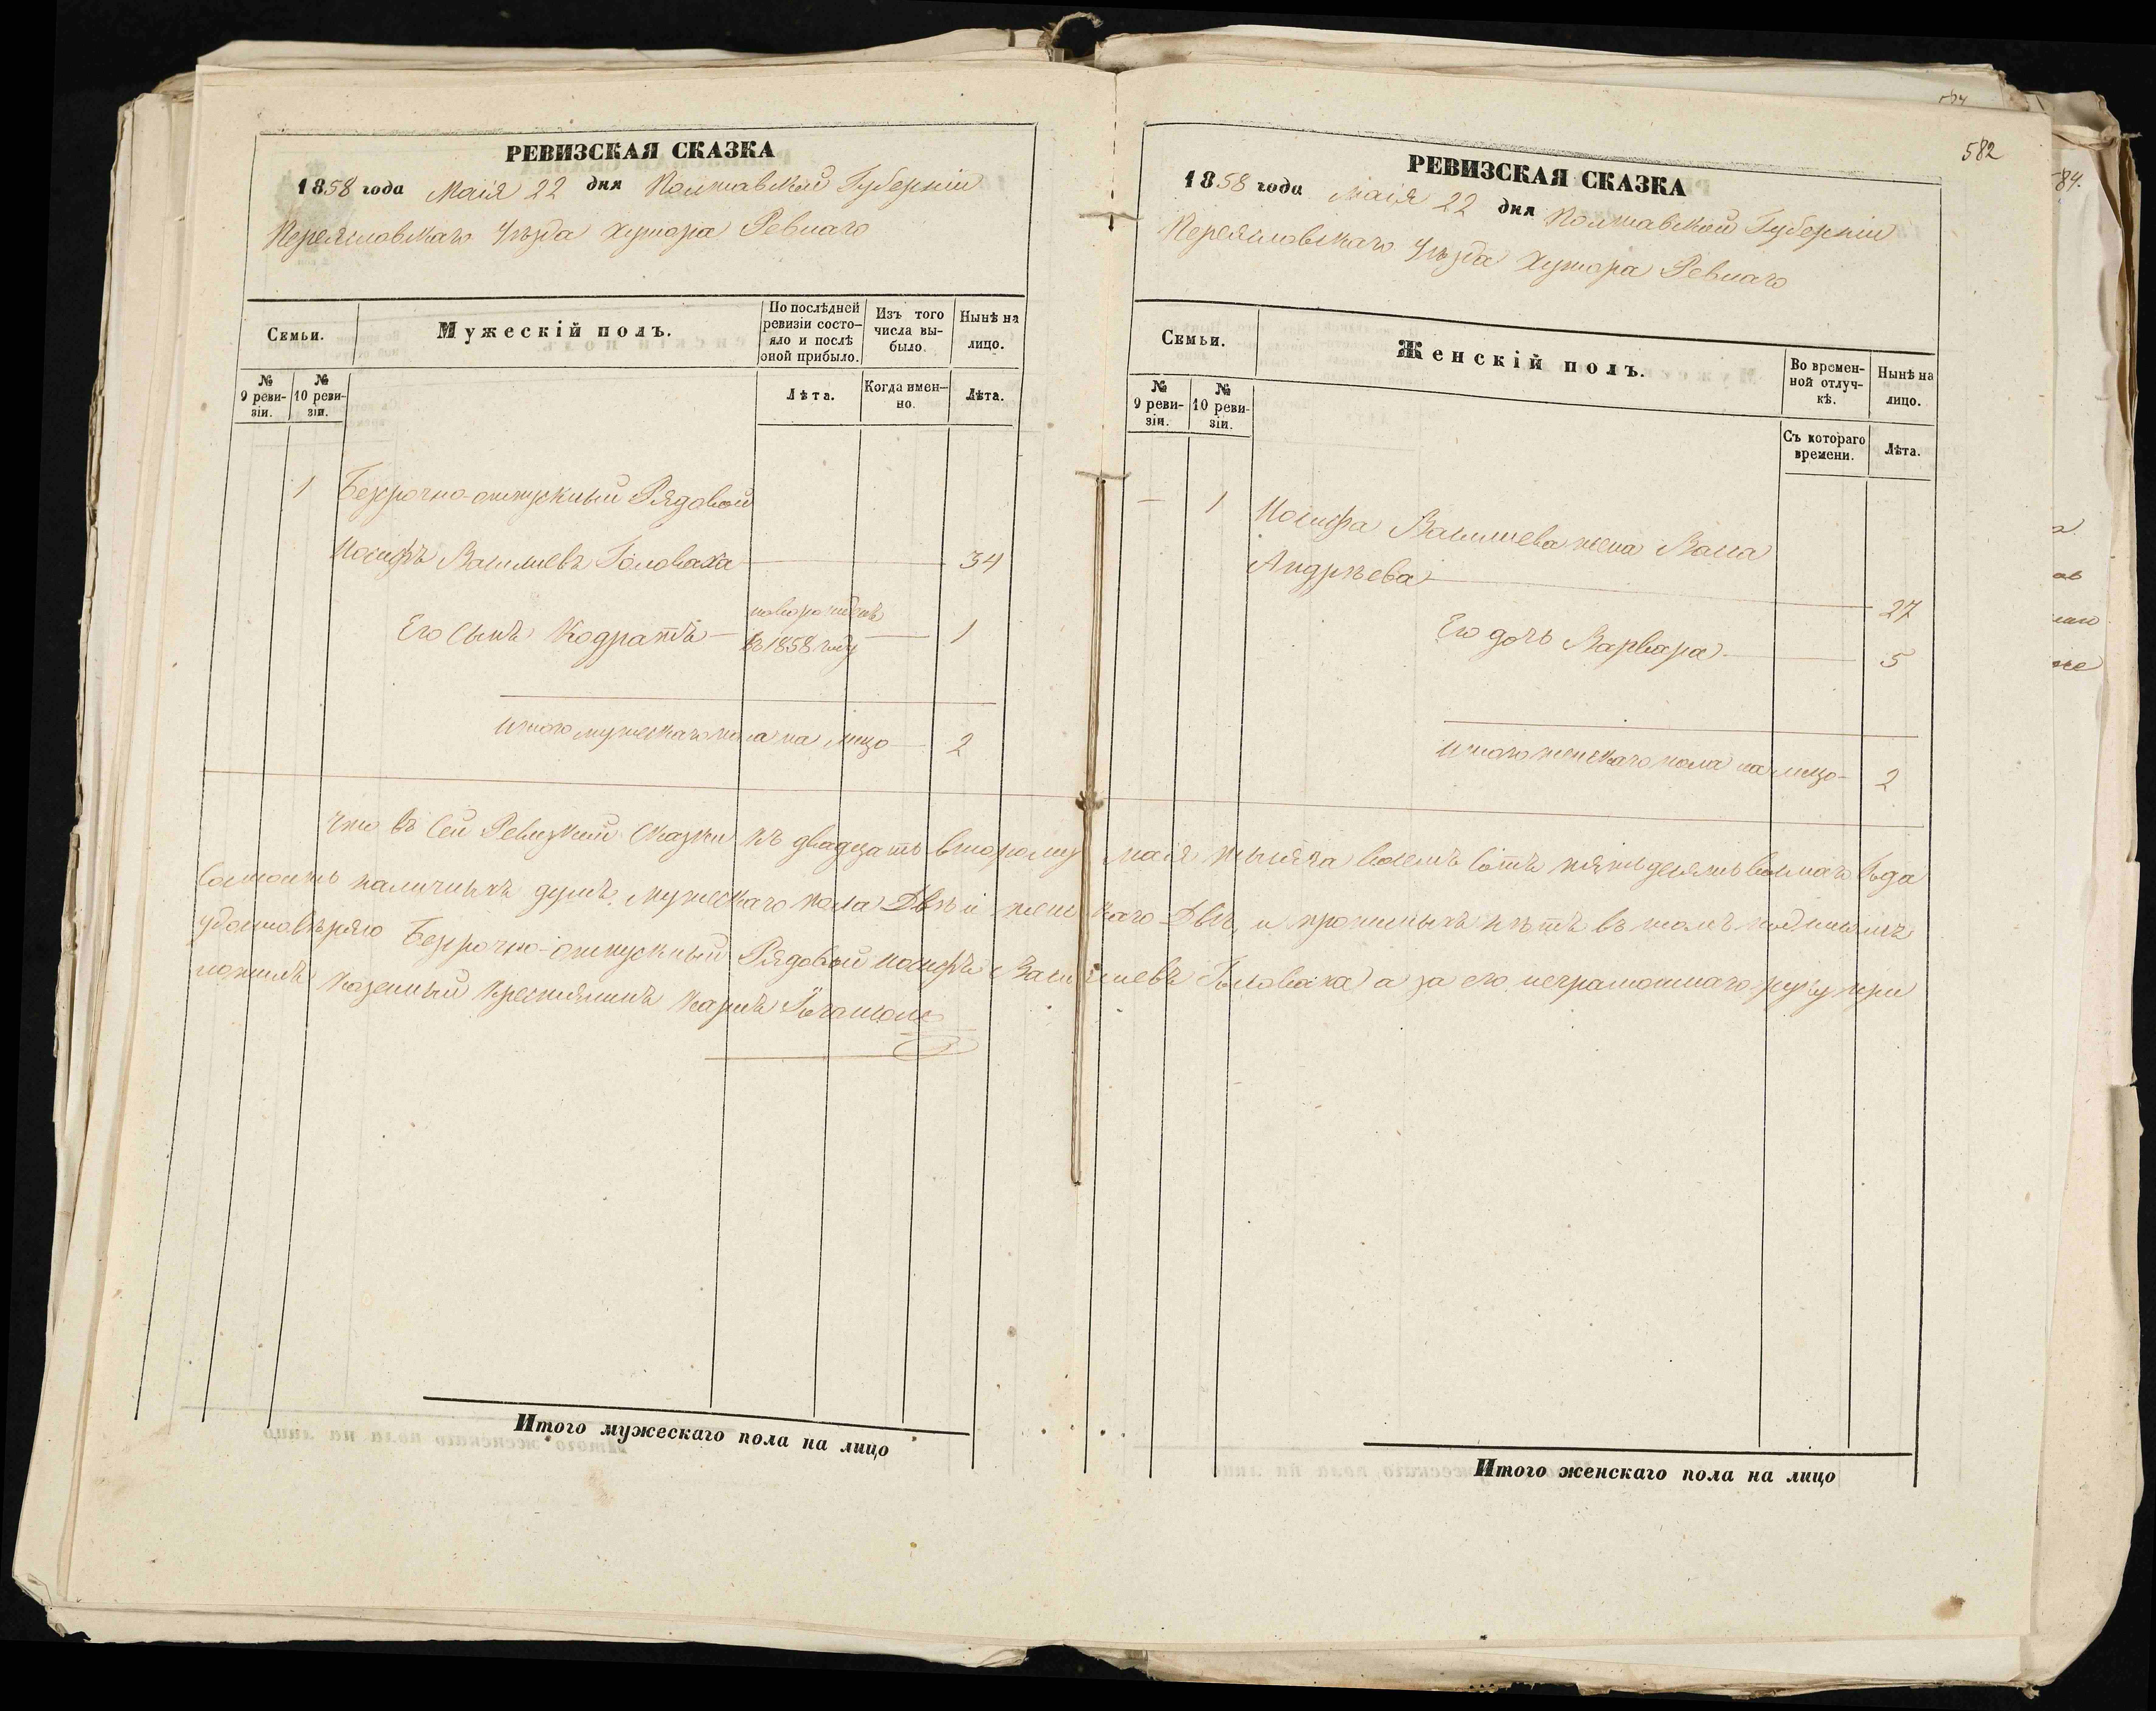 РЕВИЗСКАЯ СКАЗКА
1858 года Маія 22 дня Полтавской Губерніи
Переясловскаго Уѣзда Хутора Ревнаго
Семьи.
Мужескій полъ.
По послѣдней ревизіи состо-
яло и послѣ
оной прибыло.
Изъ того
числа вы-
было.
Нынѣ на
лицо.
№
9 реви-
зіи.
№
10 реви-
зіи.
Лѣта.
Когда имен-
но.
Лѣта.
1 Безсрочно-отпускный Рядовой
Иосифъ Василиевъ Головаха 34
Его Сынъ Кодратъ новорожденъ
въ 1858 году 1
Итого мужескаго пола на лицо 2
582
РЕВИЗСКАЯ СКАЗКА
1858 года Маія 22 дня Полтавской Губерніи
Переясловскаго Уѣзда Хутора Ревнаго
Семьи.
Женскій полъ.
Во времен-
ной отлуч-
кѣ.
Нынѣ на
лицо.
№
9 реви-
зіи.
№
10 реви-
зіи.
Съ котораго
времени.
Лѣта.
— 1 Иосифа Василиева жена Васса
Андрѣева 27
Его дочь Варвара 5
Итого женскаго пола на лицо 2
Что въ Сей Ревизкой Сказки къ двадцать второму маія тысяча восемъ сотъ пятьдесятъ восмаго года
Состоитъ наличныхъ душъ мужескаго пола Двѣ и женскаго Двѣ, и прописныхъ нѣтъ въ томъ
удостовѣряю Безсрочно-отпускный Рядовый Иосифъ Василиевъ Головаха а за его неграмотнаго руку при
ложилъ Казенный Крестянинъ
Итого мужескаго пола на лицо
Итого женскаго пола на лицо
84.